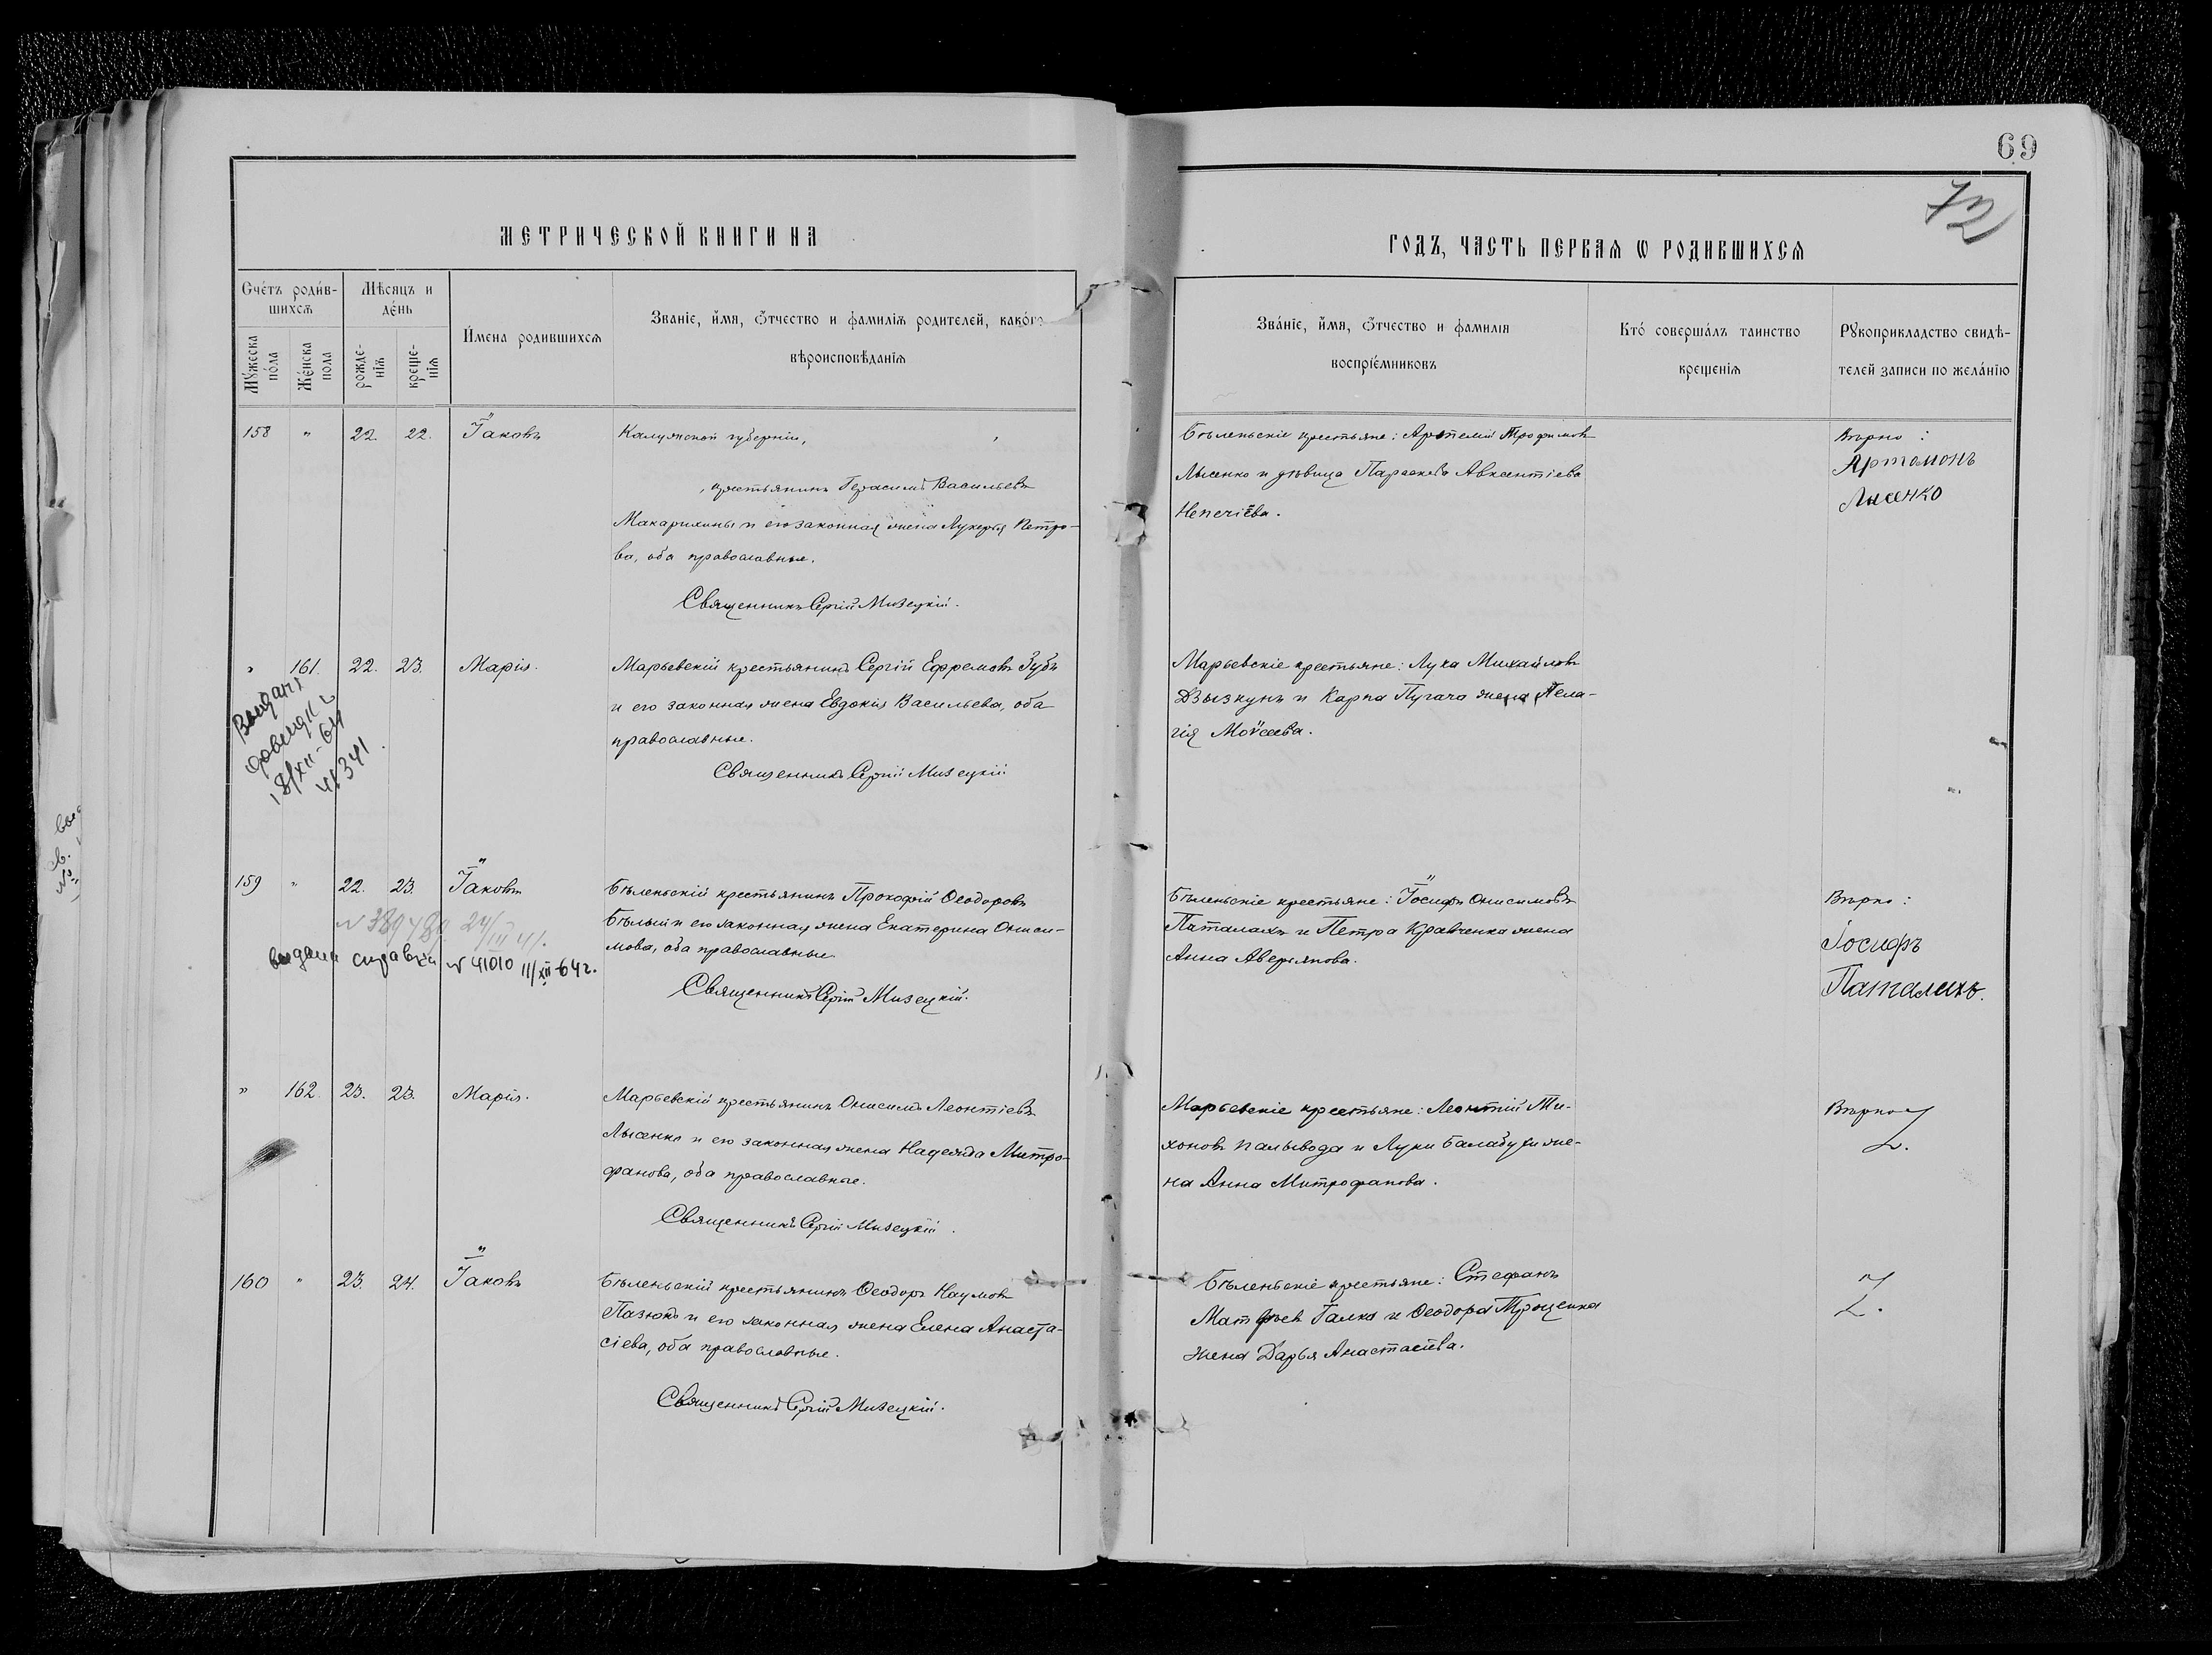 69
72
МЕТРИЧЕСКОЙ КНИГИ НА
ГОДЪ, ЧАСТЬ ПЕРВАЯ Ѡ РОДИВШИХСЯ
Счетъ родив-
шихся
Мѣсяцъ и
день
Мужеска
пола
Женска
пола
рожде-
нія
креще-
нія
Имена родившихся
Званіе, имя, ѿчество и фамилія родителей, какого
вѣроисповѣданія
Званіе, имя, ѿчество и фамилія
воспріемниковъ
Кто совершалъ таинство
крещенія
Рукоприкладство свидѣ-
телей записи по желанію
158 " 22. 22. Іаковъ
Калужской губерніи,
крестьянинъ Герасимъ Васильевъ
Макарихины и его законная жена Лукерья Петро-
ва, оба православные.
Священникъ Сергій Мизецкій.
Бѣленьскіе крестьяне: Артемій Трофимовъ
Лысенко и дѣвица Параскева Авксентіева
Непечіева.
Вѣрно:
Артамонъ
Лысенко
" 161. 22. 23. Марія.
Марьевскій крестьянинъ Сергій Ефремовъ Зубъ
и его законная жена Евдокія Васильева, оба
православные.
Священникъ Сергій Мизецкій
Марьевскіе крестьяне: Лука Михайловъ
Дзызкунъ и Карпа Пугача жена Пела-
гія Моѵсеева.
18/XII-64
41341
159 " 22. 23. Іаковъ
Бѣленьскій крестьянинъ Прокофій Ѳеодоровъ
Бѣлый и его законная жена Екатерина Ониси-
мова, оба православные.
Священникъ Сергій Мизецкій.
Бѣленьскіе крестьяне: Іосифъ Онисимовъ
Паталахъ и Петра Кравченка жена
Анна Аверьянова.
Вѣрно:
Іосифъ
Паталахъ.
выдана справка № 41010 11/XII-64г.
" 162. 23. 23. Марія.
Марьевскій крестьянинъ Онисимъ Леонтіевъ
Лысенко и его законная жена Надежда Митро-
фанова, оба православные.
Священникъ Сергій Мизецкій.
Марьевскіе крестьяне: Леонтій Ти-
хоновъ Палывода и Луки Балабухи же-
на Анна Митрофанова.
Вѣрно
160 " 23. 24. Іаковъ
Бѣленьскій крестьянинъ Ѳеодоръ Наумовъ
Пазюкъ и его законная жена Елена Анаста-
сіева, оба православные.
Священникъ Сергій Мизецкій.
Бѣленьскіе крестьяне: Стефанъ
Матфѣевъ Галка и Ѳеодора Троценка
жена Дарья Анастасіева.